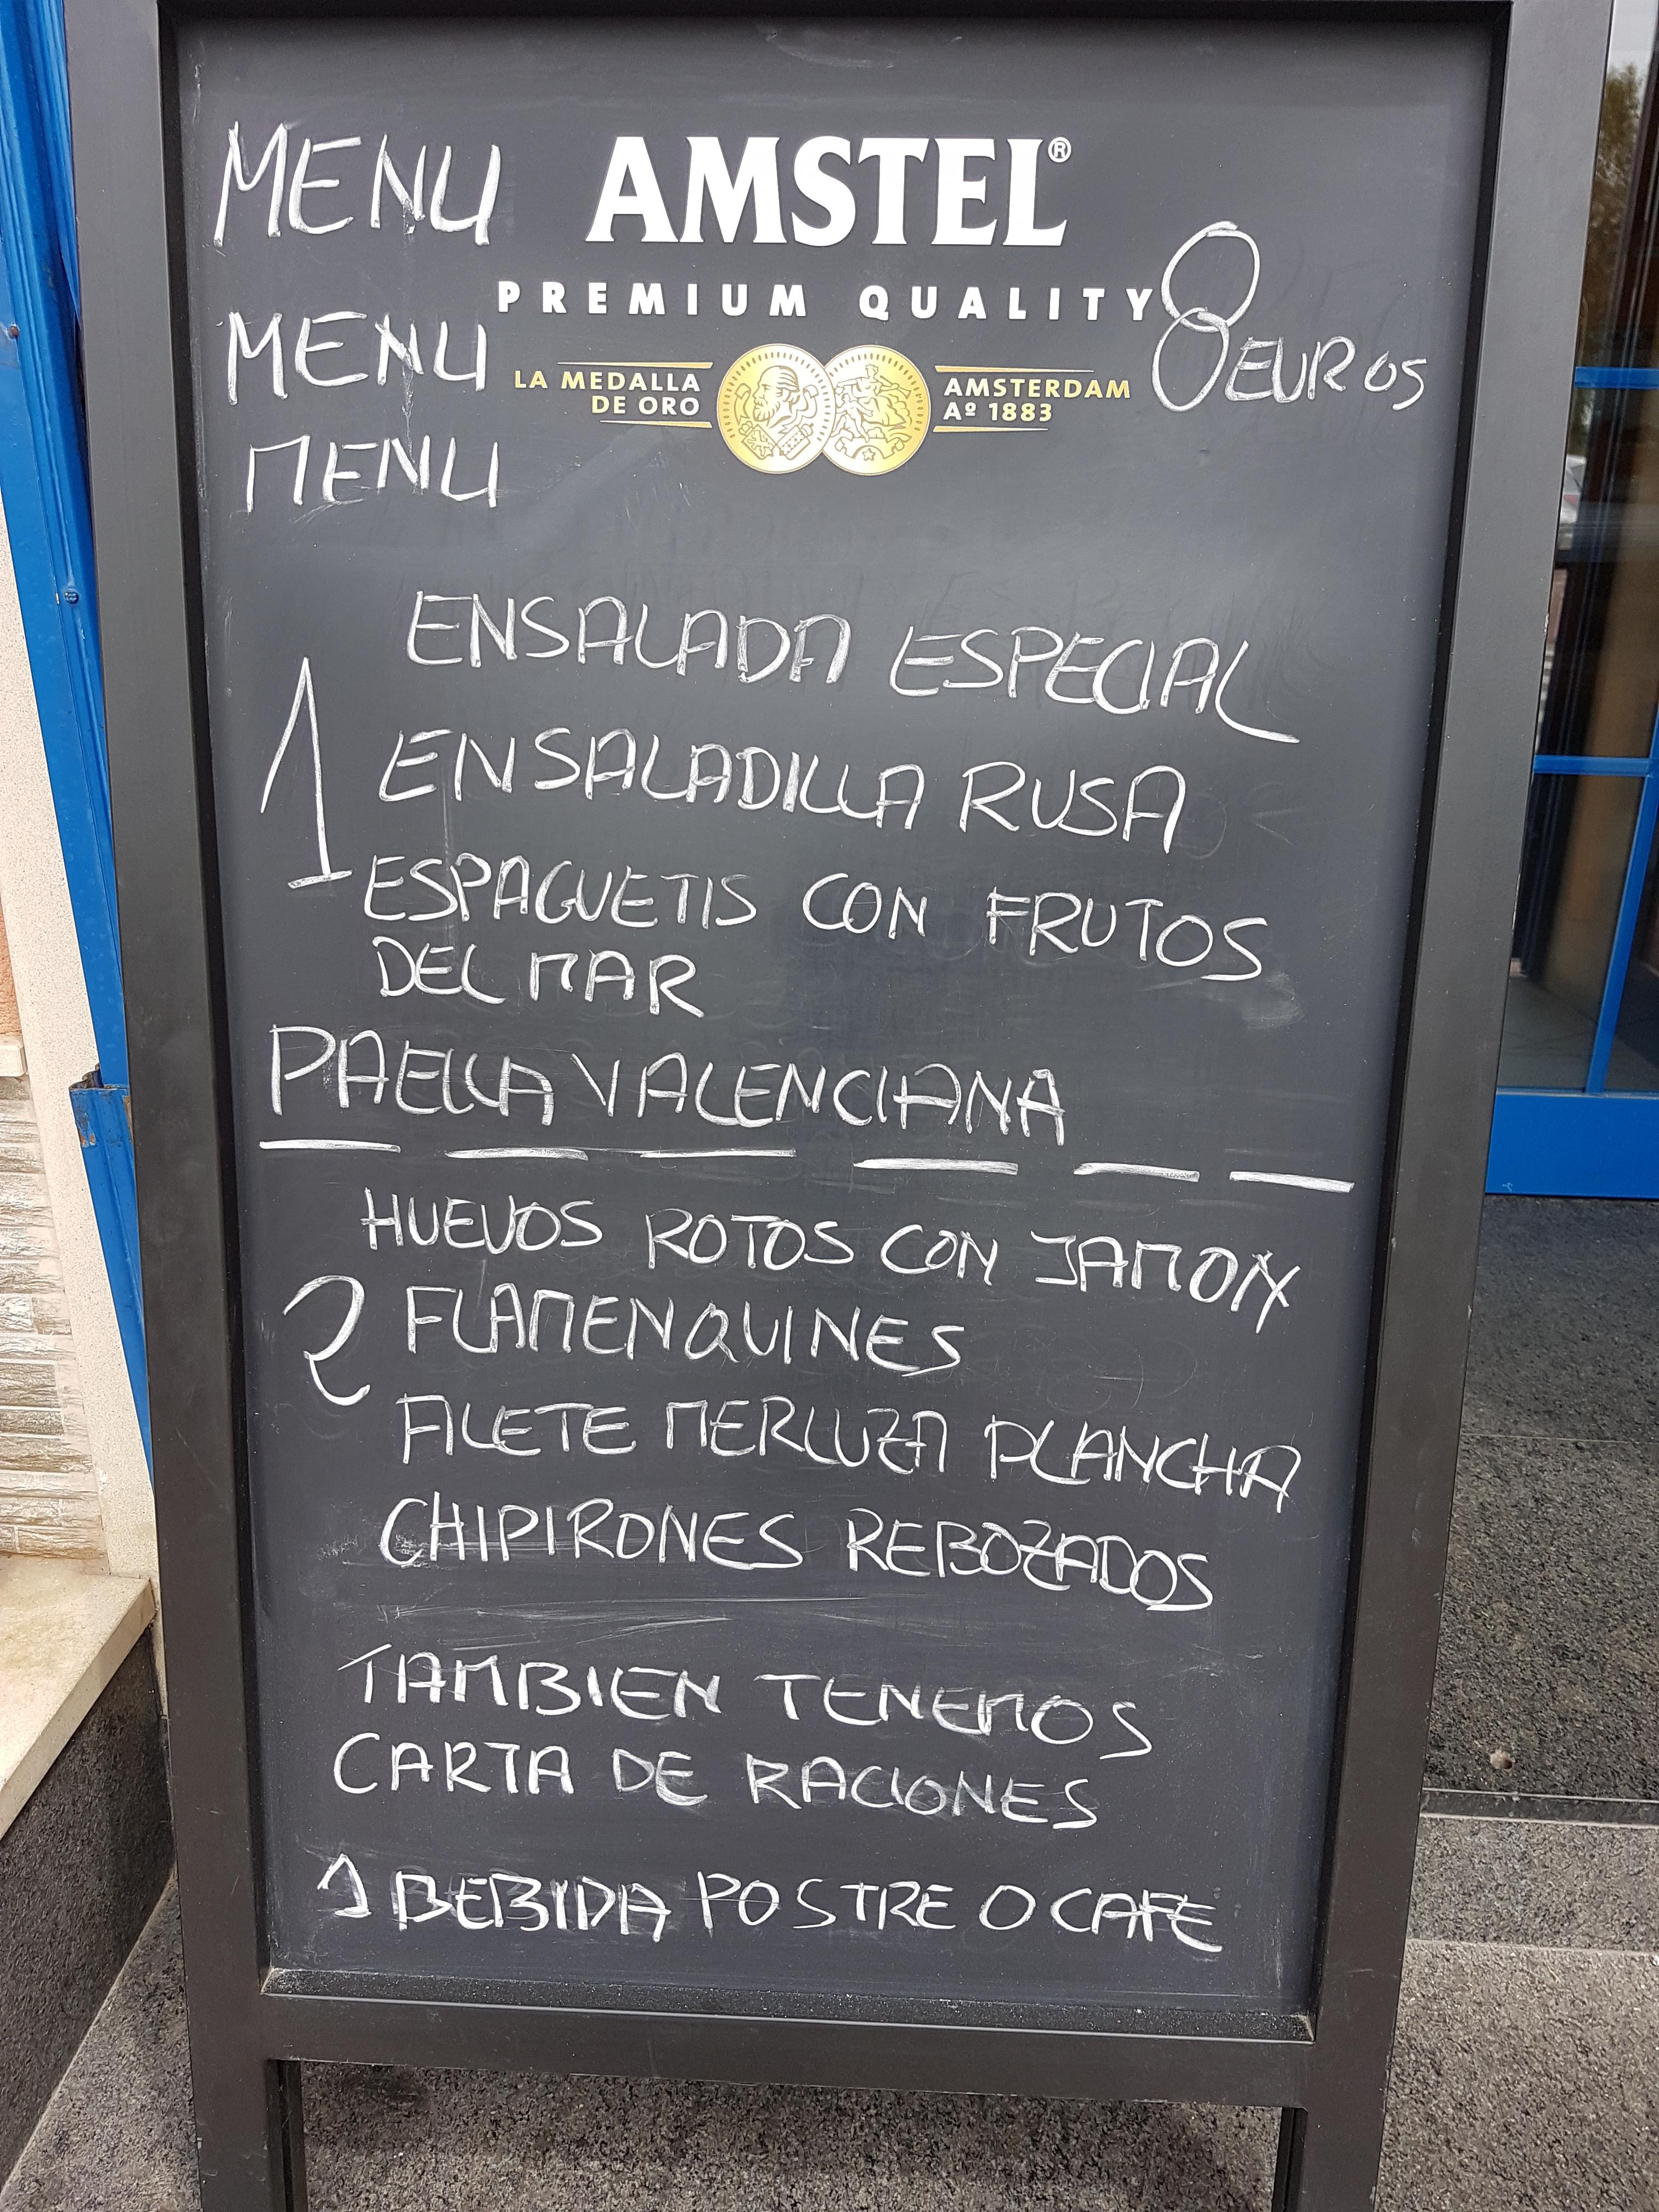 MENU AMSTEL®
PREMIUM QUALITY
MENU
8 EUROS
LA MEDALLA
DE ORO
AMSTERDAM
Aº 1883
MENU
ENSALADA ESPECIAL
1
ENSALADILLA RUSA
ESPAGUETIS CON FRUTOS
DEL MAR
PAELLA VALENCIANA
HUEVOS ROTOS CON JAMON
2
FLAMENQUINES
FILETE MERLUZA PLANCHA
CHIPIRONES REBOZADOS
TAMBIEN TENEMOS
CARTA DE RACIONES
1 BEBIDA POSTRE O CAFE